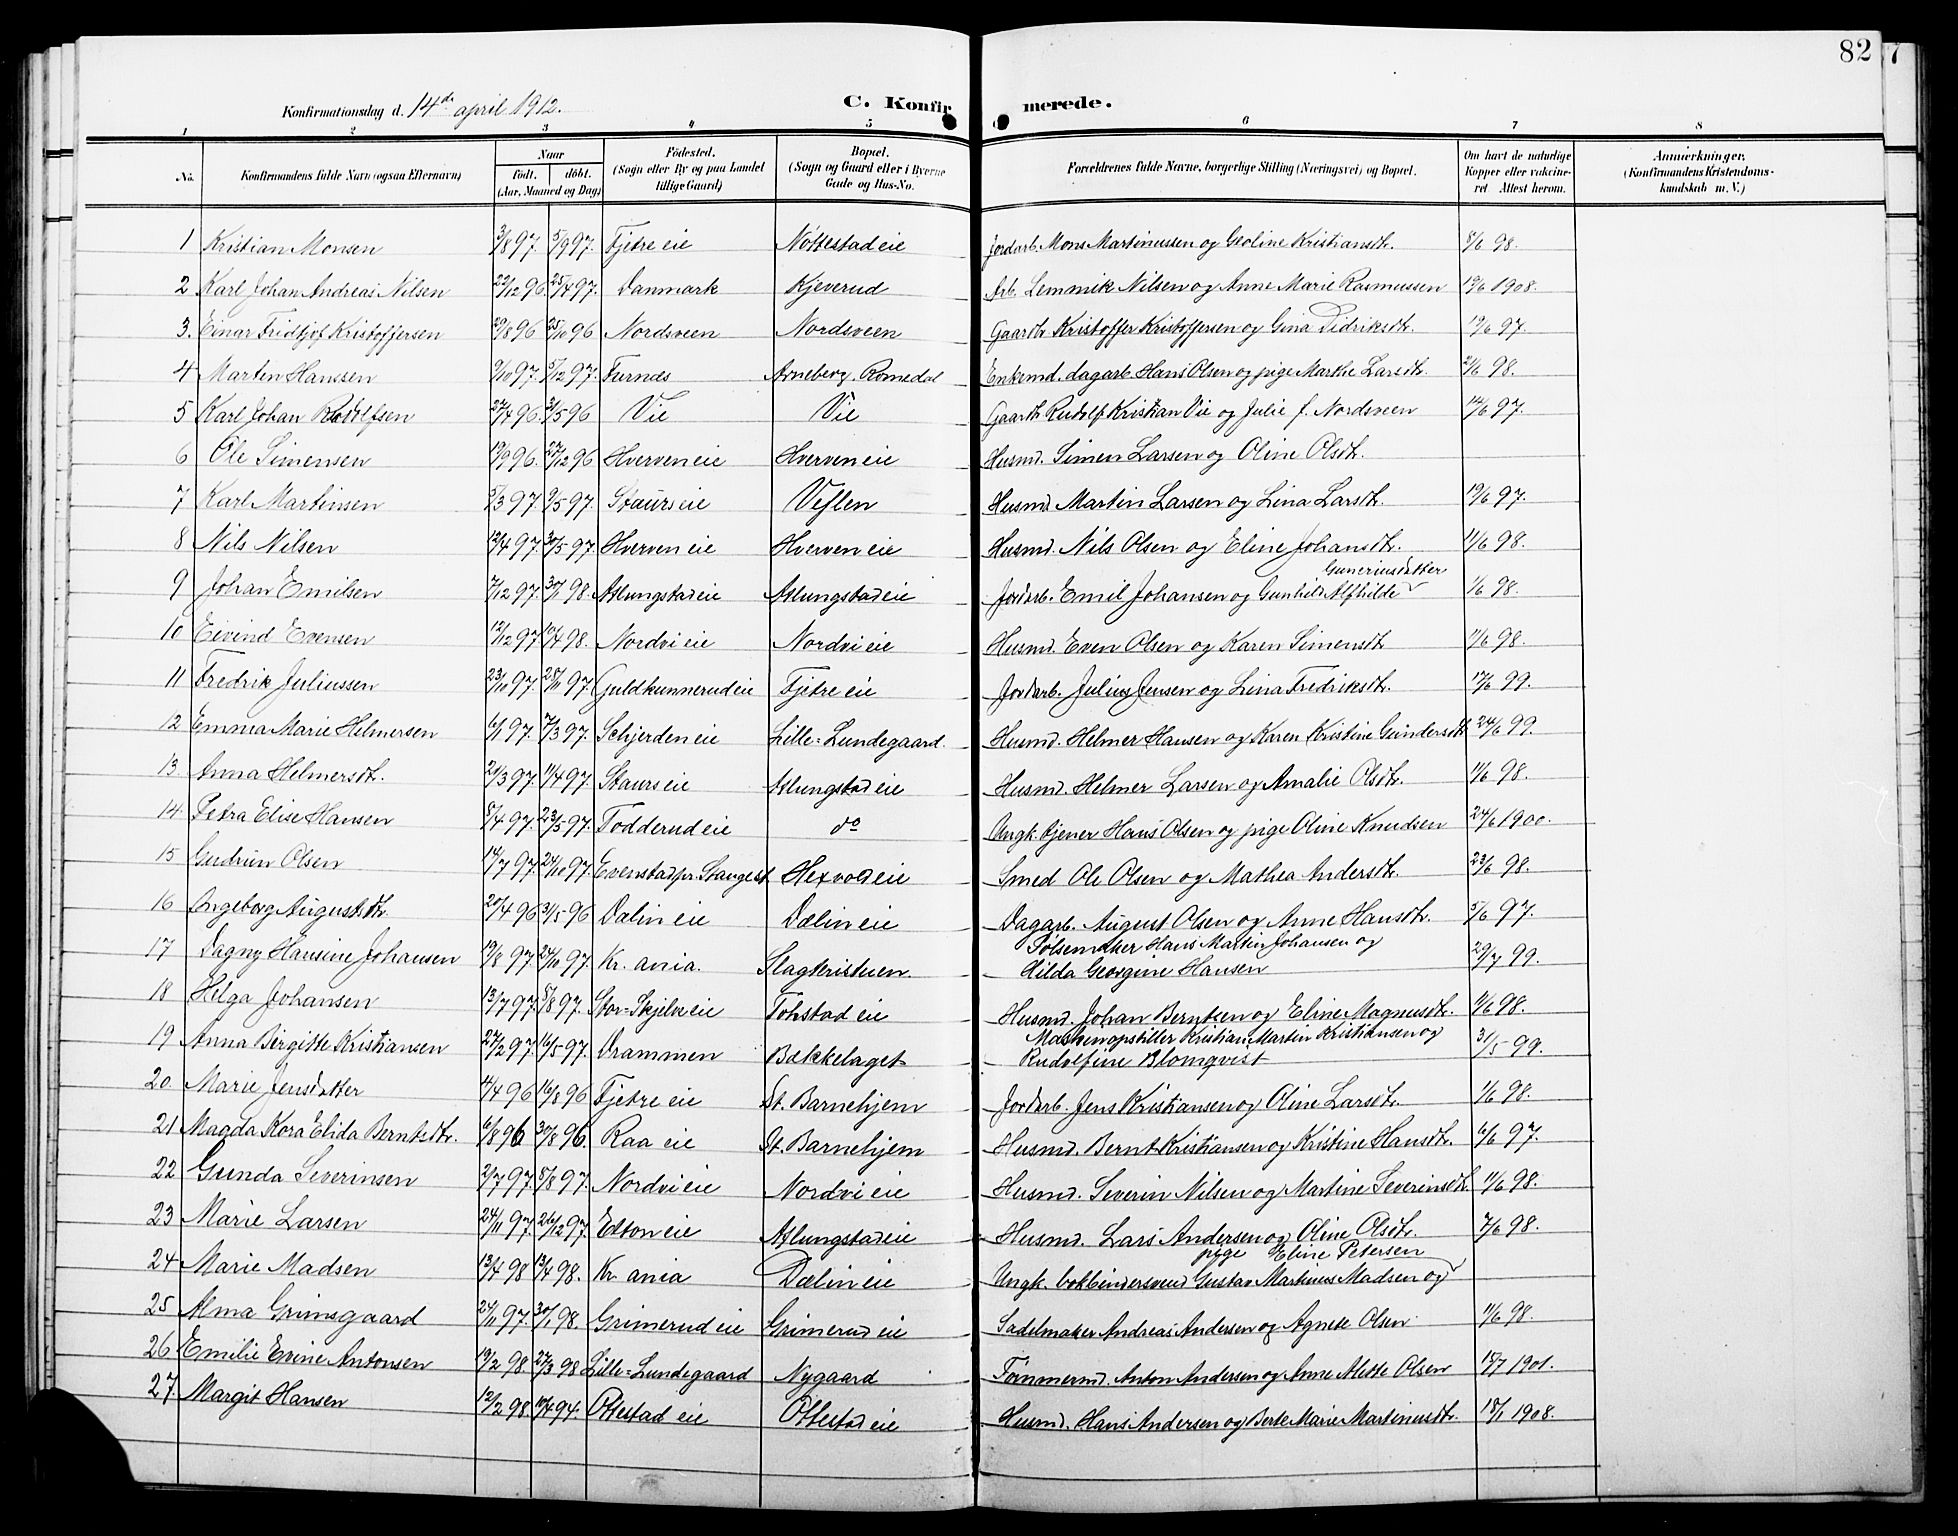 82
Konfirmationsdag d. 14de april 1912. C. Konfirmerede.
1 2 3 4 5 6 7 8
No. Konfirmandens fulde Navn (ogsaa Efternavn) Naar født. døbt. (Aar, Maaned og Dag) Fødested. (Sogn eller By og paa Landet tillige Gaard) Bopæl. (Sogn og Gaard eller i Byerne Gade og Hus-No. Forældrenes fulde Navne, borgerlige Stilling (Næringsvei) og Bopæl. Om havt de naturlige Kopper eller vakcineret Attest herom. Anmærkninger. (Konfirmandens Kristendomskundskab m. V.)
1 Kristian Monsen 3/8 97. 5/9 97. Tjetre eie Nøttestad eie Jordarb. Mons Martinussen og Geoline Kristiansdtr. 8/6 98.
2 Karl Johan Andreas Nilsen 23/12 96. 25/4 97. Danmark Kjeverud Arb. Lemmik Nilsen og Anne Marie Rasmussen 19/6 1908.
3. Einar Fridtjof Kristoffersen 29/8 96 25/10 96 Nordsveen Nordsveen Gaardbr. Kristoffer Kristoffersen og Gina Didriksdtr. 19/6 97.
4 Martin Hansen 9/10 97. 5/12 97. Furnes Arneberg, Romedal Enkemd. dagarb. Hans Olsen og pige Marthe Larsdtr. 21/6 98.
5 Karl Johan Rudolfsen 27/4 96. 31/5 96 Vie Vie Gaardbr. Rudolf Kristian Vie og Julie f. Nordsveen 14/6 97.
6 Ole Simensen 19/9 96. 27/12 96 Hverven eie Hverven eie Husmd. Simen Larsen og Oline Olsdtr.
7 Karl Martinsen 5/3 97. 9/5 97. Staurs eie Veflen Husmd. Martin Larsen og Lina Larsdtr. 19/6 97.
8 Nils Nilsen 12/4 97. 30/5 97. Hverven eie Hverven eie Husmd. Nils Olsen og Eline Johansdtr. 11/6 98.
9 Johan Emilsen 7/12 97. 30/1 98. Atlungstad eie Atlungstad eie Jordarb. Emil Johansen og Gunhild Alfhilde Gunerius datter 1/6 98.
10 Eivind Evensen 12/12 97. 10/4 98. Nordvi eie Nordvi eie Husmd. Even Olsen og Karen Simensdtr. 11/6 98.
11 Fredrik Juliussen 23/10 97. 28/11 97. Guldkunnerud eie Tjetre eie Jordarb. Julius Jensen og Lina Fredriksdtr. 17/6 99.
12 Emma Marie Helmersen 6/1 97. 7/3 97. Schjerden eie Lille-Lundegaard. Husmd. Helmer Hansen og Karen Kristine Gundersdtr. 24/6 99.
13 Anna Helmersdtr. 21/3 97. 11/4 97. Staurs eie Atlungstad eie Husmd. Helmer Larsen og Amalie Olsdtr. 11/6 98.
14 Petra Elise Hansen 8/4 97. 23/5 97. Todderud eie do Ungk. tjener Hans Olsen og pige Oline Knudsen 24/6 1900.
15 Gudrun Olsen 14/7 97. 24/10 97. Evenstad pr. Stange st. Hexvold eie Smed Ole Olsen og Mathea Andersdtr. 23/6 98.
16 Ingeborg Augustsdtr. 20/4 96 31/5 96 Dælin eie Dælin eie Dagarb. August Olsen og Anne Hansdtr. 5/6 97.
17 Dagny Hansine Johansen 19/8 97. 24/10 97. Kr.ania. Slagteristuen. Pølsemaker Hans Martin Johansen og Hilda Georgine Hansen 29/7 99.
18 Helga Johansen 13/7 97. 8/8 97. Stor-Skjelve eie Tohstad eie Husmd. Johan Berntsen og Eline Magnusdtr. 11/6 98.
19 Anna Birgitte Kristiansen 27/2 97. 16/5 97. Drammen Bækkelaget Maskinopstiller Kristian Martin Kristiansen og Rudolfine Blomqvist 31/5 99.
20. Marie Jensdatter 4/4 96 16/8 96 Tjetre eie St. Barnehjem Jordarb. Jens Kristiansen og Oline Larsdtr. 1/6 98.
21 Magda Kora Elida Berntsdtr. 6/8 96 30/8 96. Raa eie St. Barnehjem Husmd. Bernt Kristiansen og Kristine Hansdtr. 6/6 97.
22 Gunda Severinsen 2/7 97. 8/8 97. Nordvi eie Nordvi eie Husmd. Severin Nilsen og Martine Severinsdtr. 11/6 98.
23 Marie Larsen 24/11 97. 26/12 97. Edton eie Atlungstad eie Husmd. Lars Andersen og Oline Olsdtr. 7/6 98.
24 Marie Madsen 13/4 98 13/4 98. Kr.ania Dælin eie Ungk. bokbindersvend Gustav Martinius Madsen og pige Eline Petersen
25 Alma Grimsgaard 24/11 97. 30/1 98. Grimerud eie Grimerud eie Sadelmaker Andreas Andersen og Agnete Olsen 11/6 98.
26 Emilie Evine Antonsen 19/2 98. 27/3 98 Lille-Lundegaard Nygaard Tømmermd. Anton Andersen og Anne Mette Olsen 15/7 1901.
27. Margit Hansen 12/2 98. 10/4 94. Ottestad eie Ottestad eie Husmd. Hans Andersen og Berte Marie Martinusdtr. 18/1 1908.